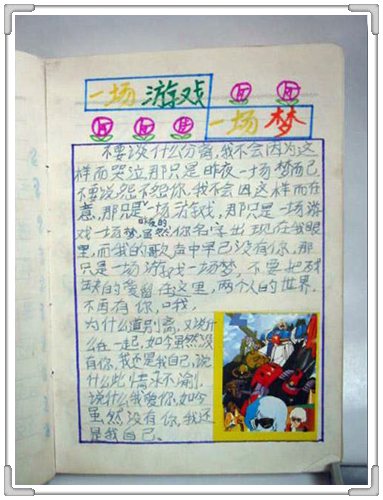 一场游戏
一场梦
不要谈什么分离,我不会因为这
样而哭泣,那只是昨夜一场梦而已
不要说愿不愿你,我不会因这样而在
意,那只是一场游戏,那只是一场游
戏一场梦,虽然你名字出现在我眼
里,而我的歌声中早已没有你,那
只是一场游戏一场梦,不要把残
缺的爱留在这里,两个人的世界,
不再有你,哦,
为什么道别离,又说什
么在一起,如今虽然没
有你,我还是我自己,说
什么此情永不渝,
说什么我爱你,如今
虽然没有你,我还
是我自己。